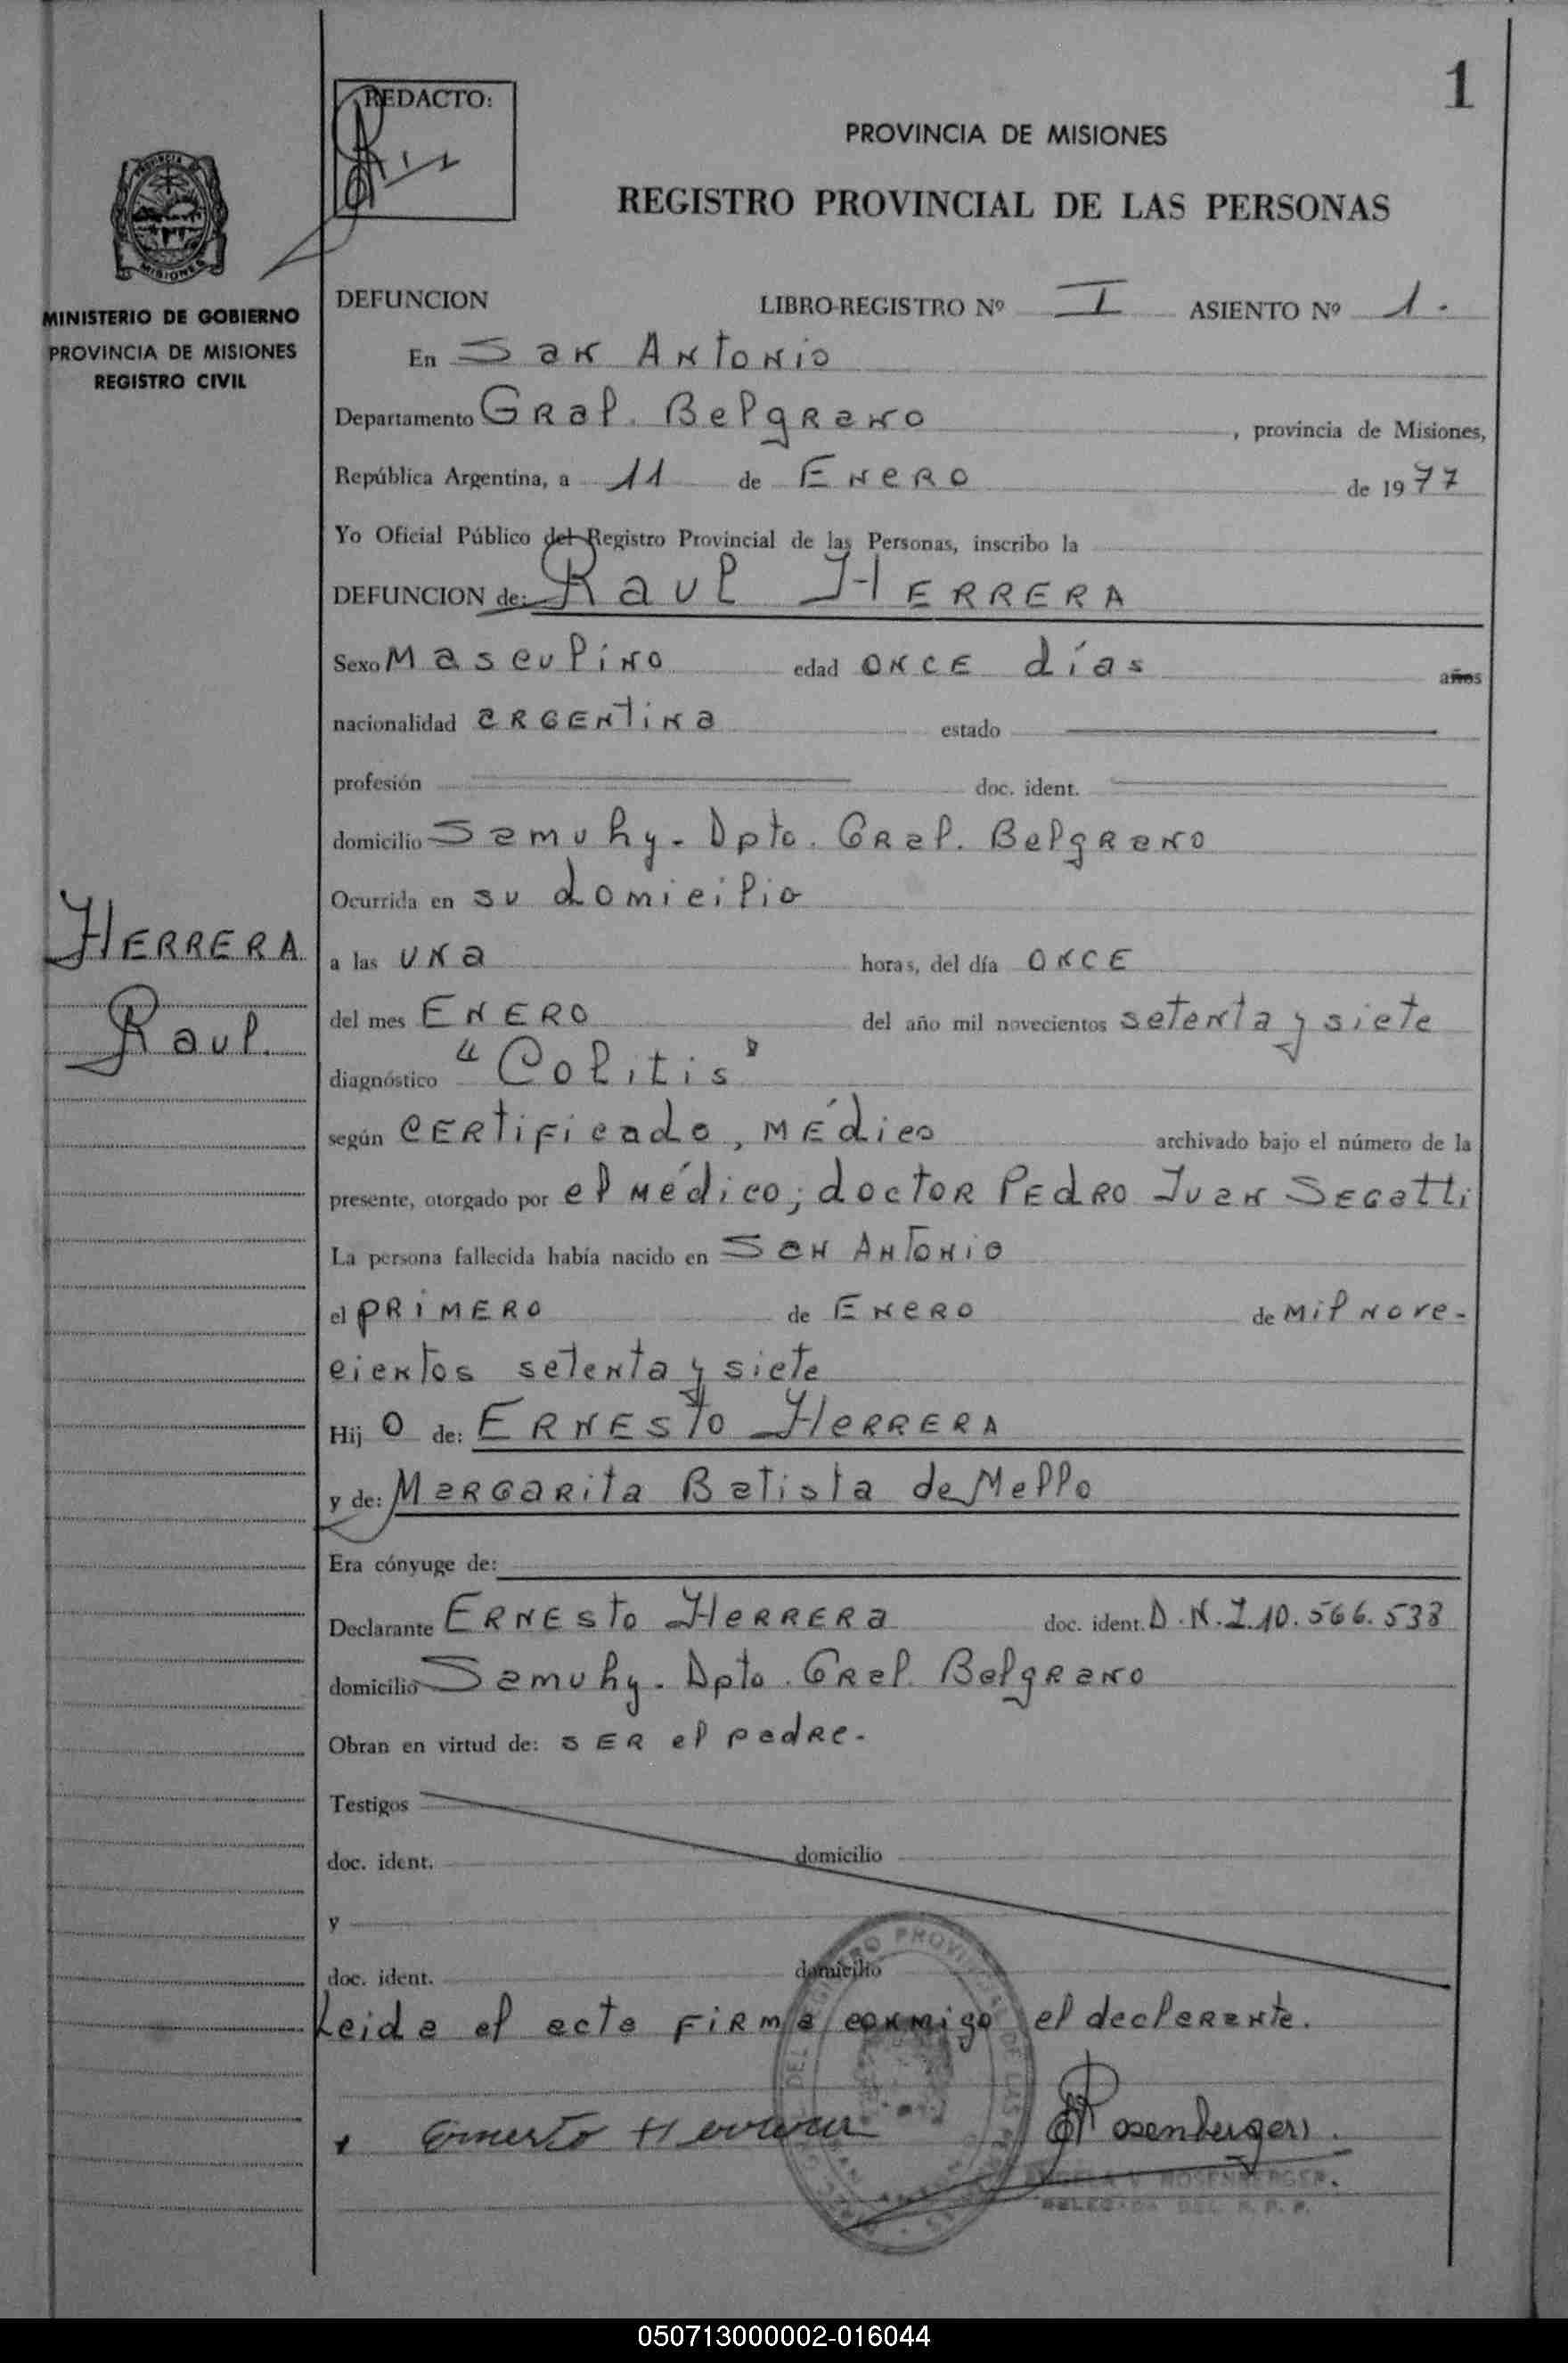 1
REDACTO:
PROVINCIA DE MISIONES
REGISTRO PROVINCIAL DE LAS PERSONAS
MISIONES
MINISTERIO DE GOBIERNO
PROVINCIA DE MISIONES
REGISTRO CIVIL
HERRERA
Raul.
DEFUNCION LIBRO-REGISTRO Nº I ASIENTO Nº 1.
En San Antonio
Departamento Gral. Belgrano, provincia de Misiones,
República Argentina, a 11 de Enero de 1977
Yo Oficial Público del Registro Provincial de las Personas, inscribo la
DEFUNCION de: Raul HERRERA
Sexo Masculino edad once días años
nacionalidad argentina estado
profesión doc. ident.
domicilio Samuhy. Dpto. Gral. Belgrano
Ocurrida en su domicilio
a las una horas, del día once
del mes ENERO del año mil novecientos setenta y siete
diagnóstico "Colitis"
según certificado, médico archivado bajo el número de la
presente, otorgado por el médico; doctor Pedro Juan Segatti
La persona fallecida había nacido en San Antonio
el primero de Enero de mil nove-
cientos setenta y siete
Hij o de: Ernesto Herrera
y de: Margarita Batista de Mello
Era cónyuge de:
Declarante Ernesto Herrera doc. ident. D.N.I. 10.566.538
domicilio Samuhy. Dpto. Gral. Belgrano
Obran en virtud de: ser el padre.
Testigos
doc. ident. domicilio
y
doc. ident. domicilio
Leida el acta firma conmigo el declarante.
Ernesto Herrera Rosenberger.
ROSENBERGER.
DELEGADA DEL R. P. P.
050713000002-016044